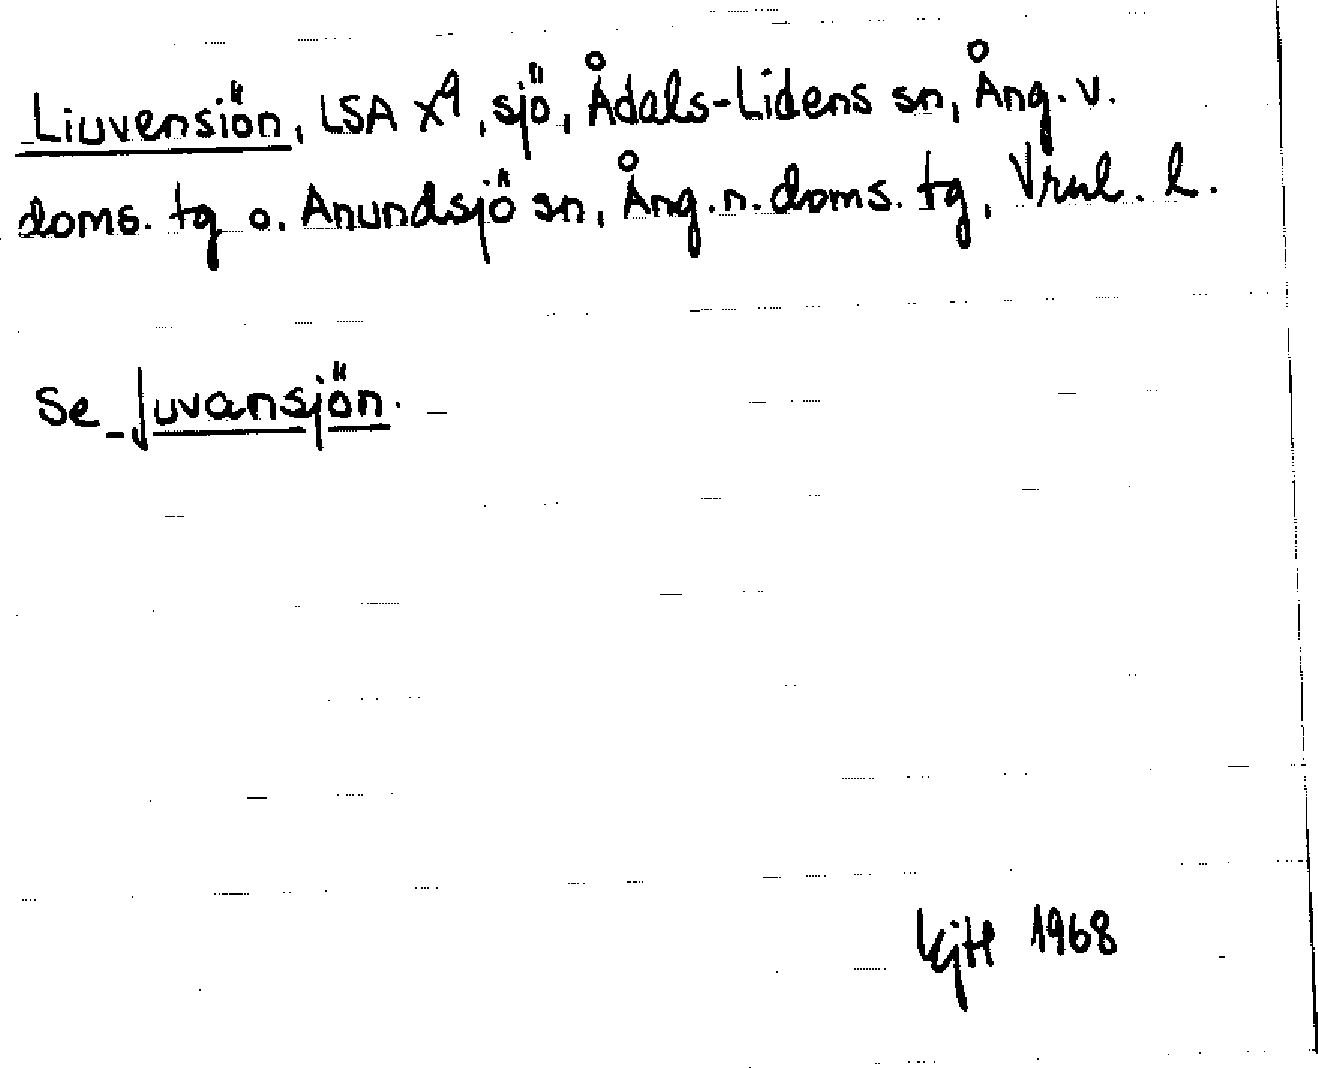 Liuvensiön, LSA X9, sjö, Ådals-Lidens sn, Ång. v.
doms. tg o. Anundsjö sn, Ång. n. doms. tg, Vrnl. l.
Se Juvansjön.
1968